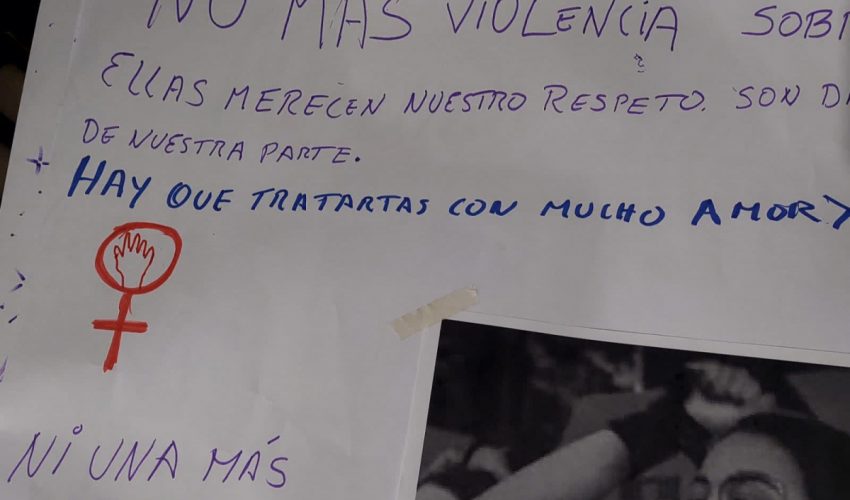 NO MÁS VIOLENCIA SOB
ELLAS MERECEN NUESTRO RESPETO. SON D
DE NUESTRA PARTE.
HAY QUE TRATARTAS CON MUCHO AMOR Y
NI UNA MÁS